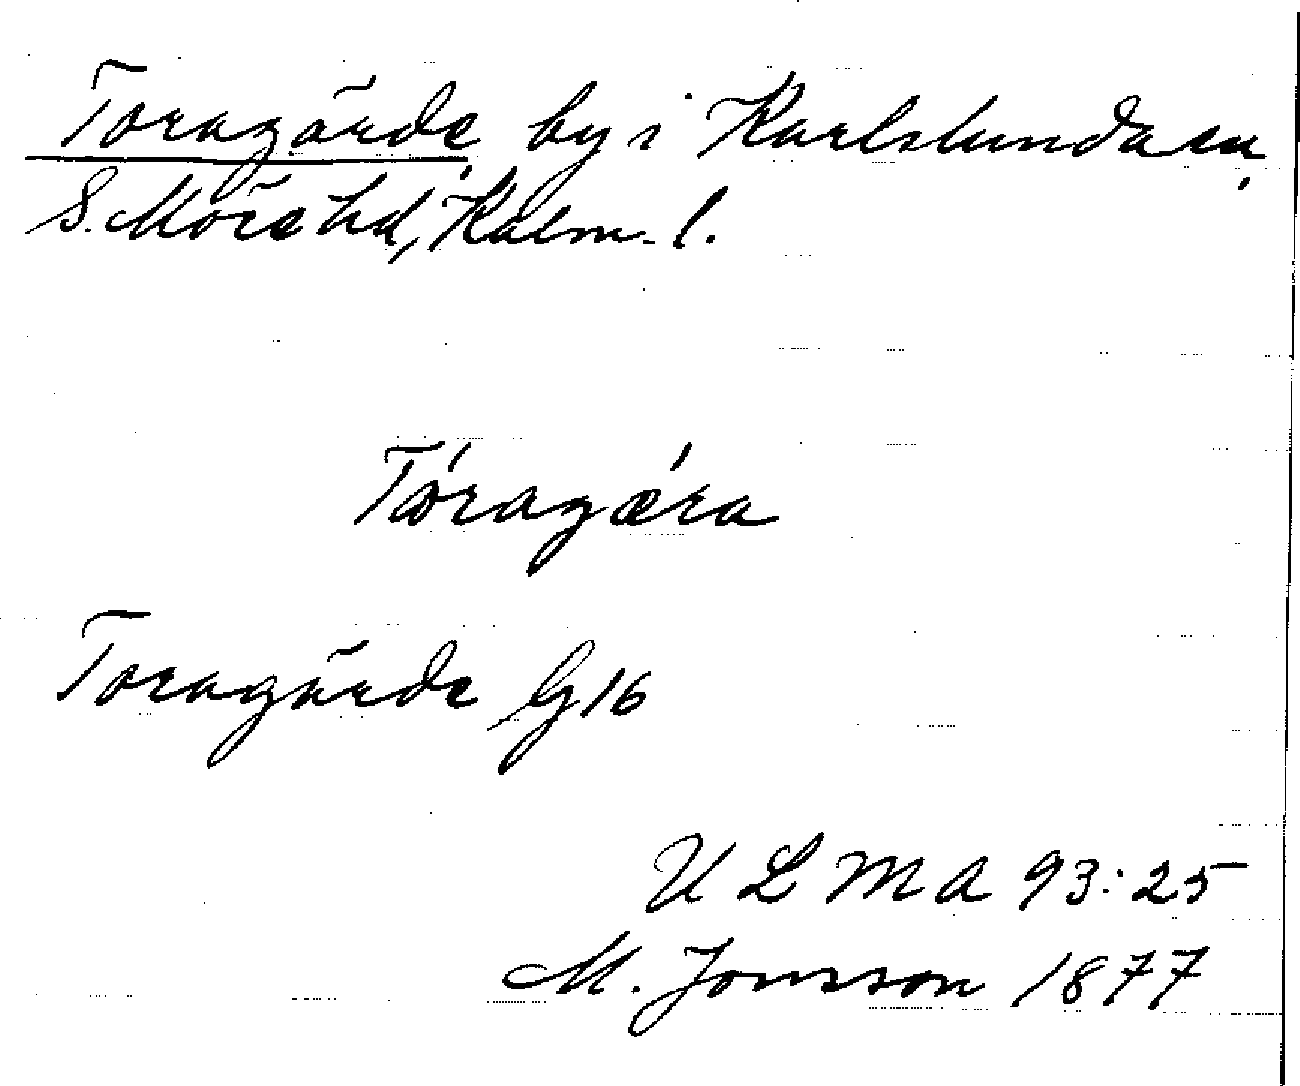 Toragärde, by i Karlslunda sn,
S. Möre hd, Kalm. l.
Tóragǽra
Toragärde G16
ULMA 93:25
M. Jonsson 1877